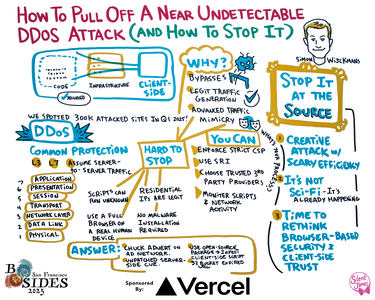 How To Pull Off A Near Undetectable
DDoS Attack (And How To Stop It)
Simon Wijckmans
Code
Infrastructure
Client-Side
Why?
Bypasses
Legit Traffic Generation
Advanced Traffic Mimicry
Stop It At The Source
We spotted 300k attacked sites in Q1 2025!
DDoS
Common Protection
L3 L7 Assume server-to-server traffic
7 Application
6 Presentation
5 Session
4 Transport
3 Network Layer
2 Data Link
1 Physical
Hard To Stop
Scripts can run unknown
Residential IPs are legit
Use a full browser on a real human device
No malware installation required
You Can
Enforce strict CSP
Use SRI
Choose trusted 3rd party providers
Monitor scripts & network activity
What's your process?
1 Creative attack w/ scary efficiency
2 It's not sci-fi - it's already happening
3 Time to rethink browser-based security & client-side trust
Answer:
Chuck advert on ad network.
Unpatched server-side CVE.
Use open-source package to inject client-side script
BSides
San Francisco
2025
Sponsored By:
Vercel